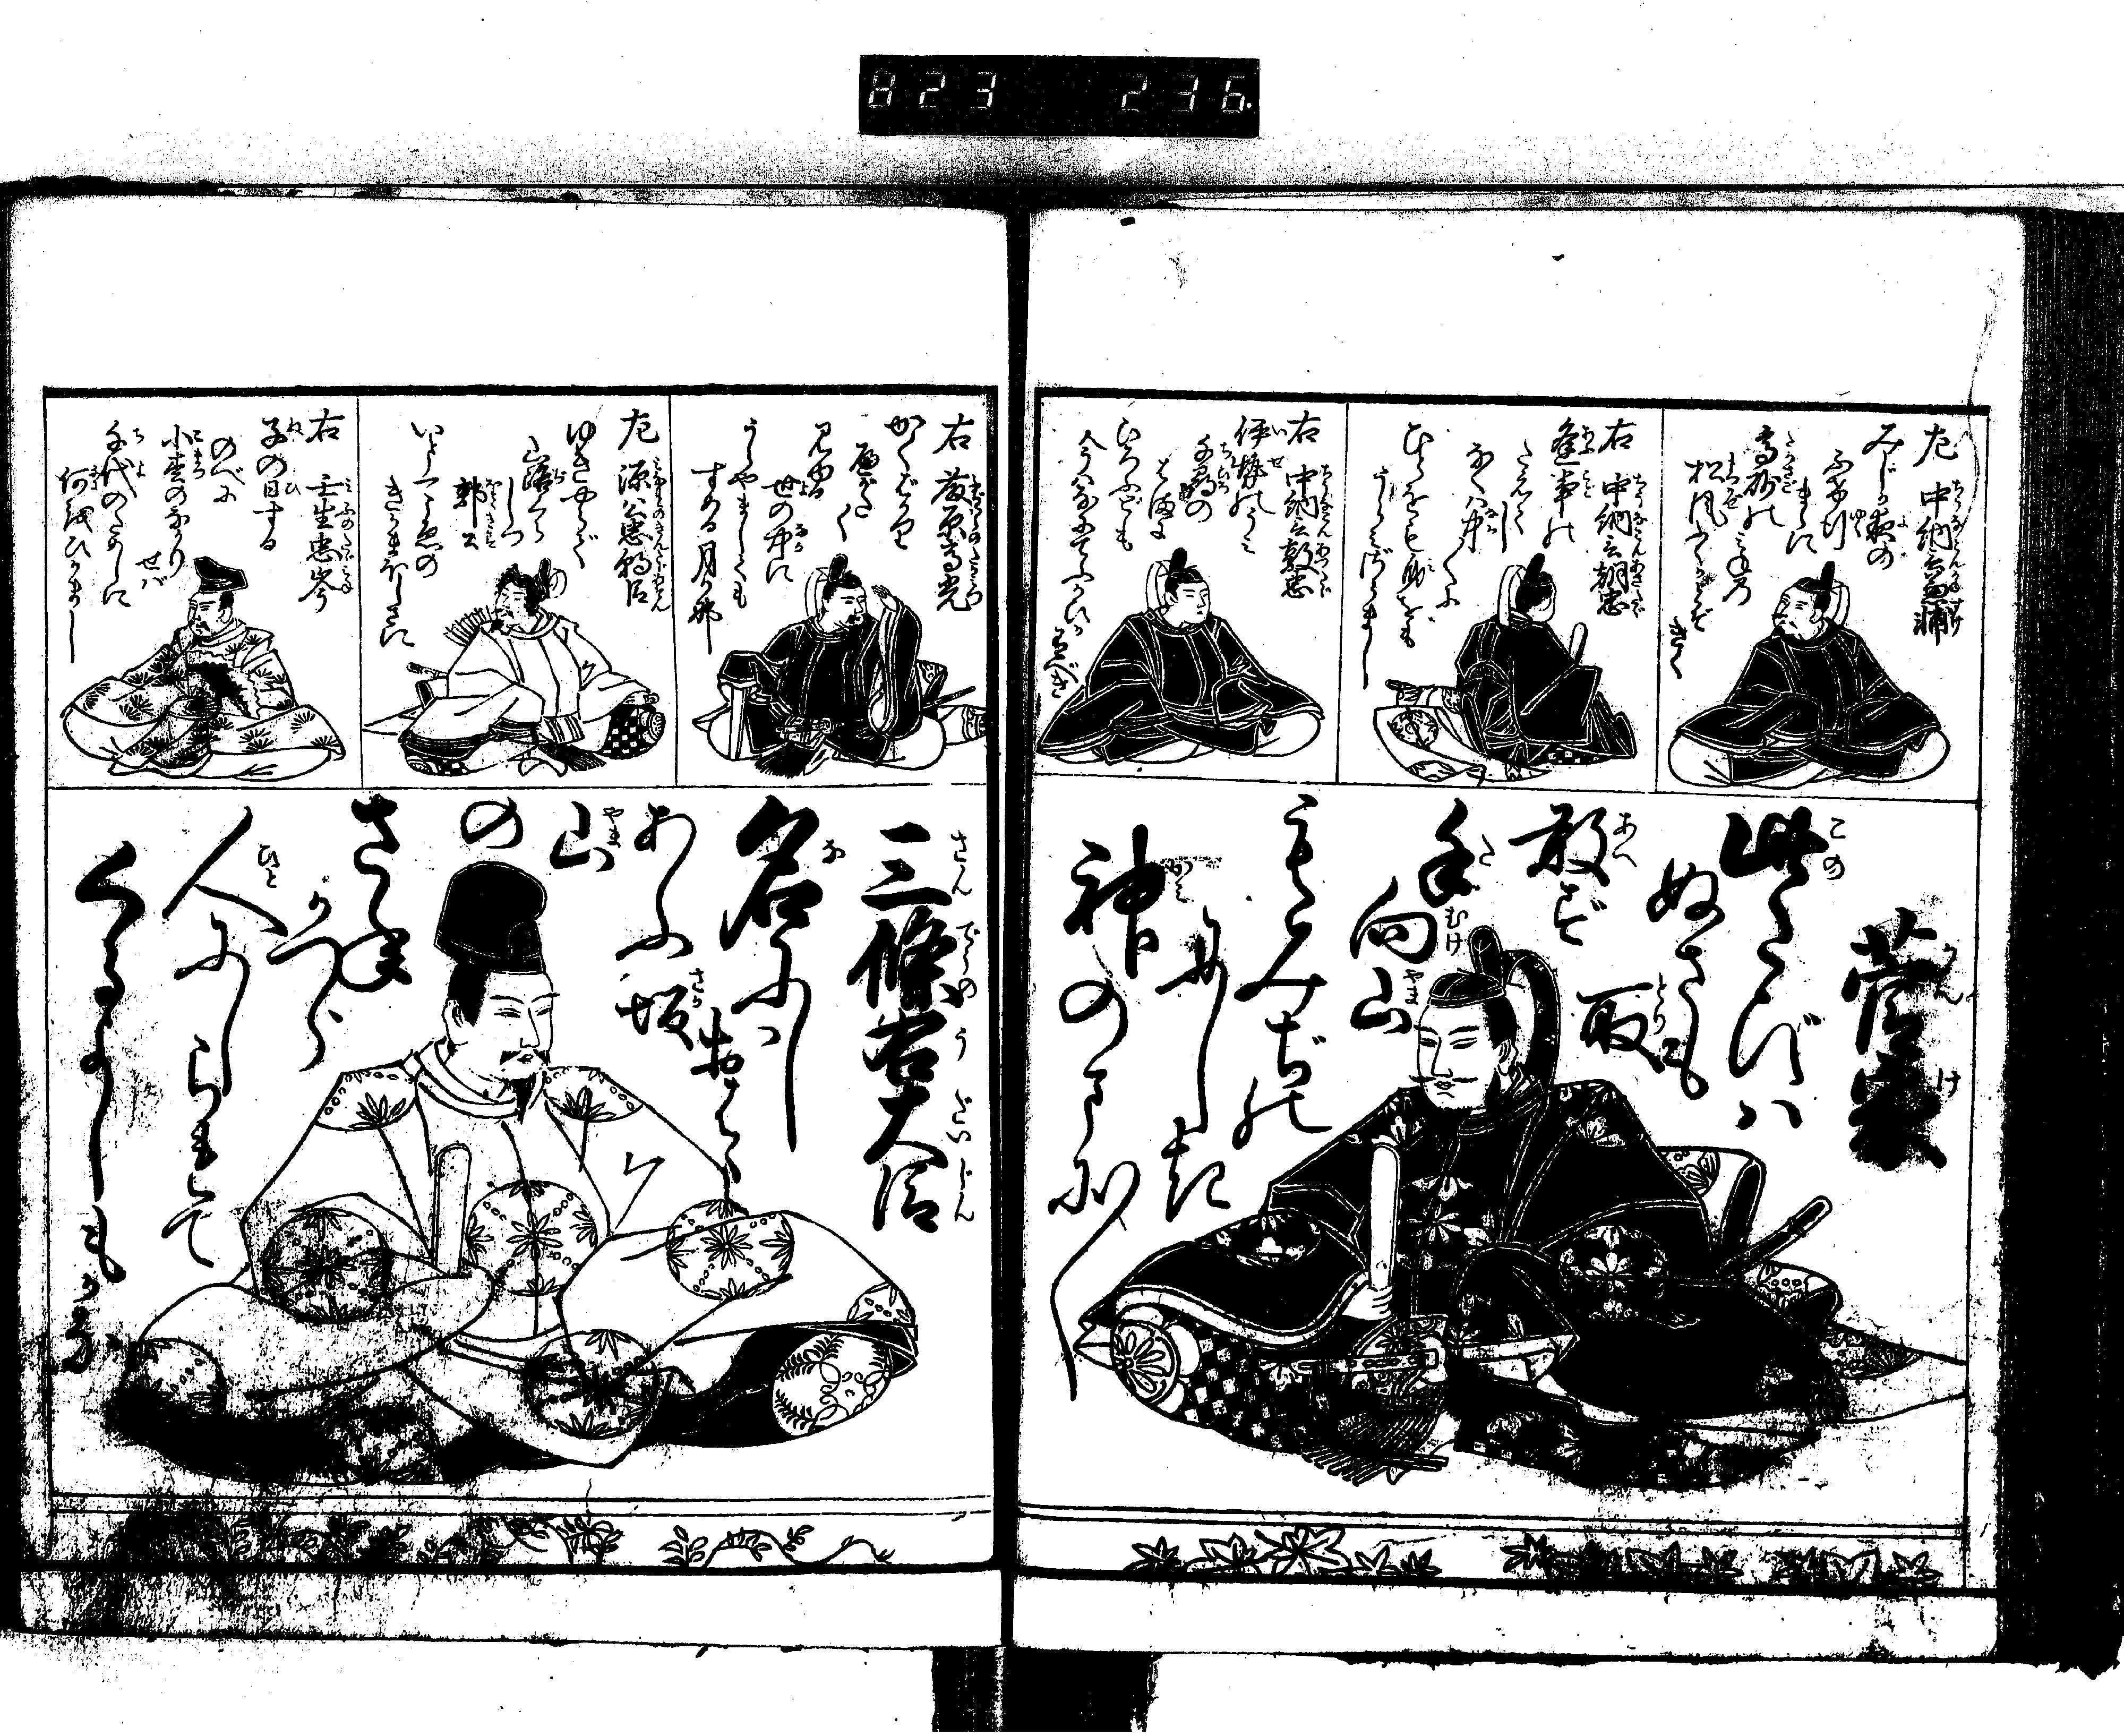 823 236.
左 中納言兼輔
みじか夜の
ふけ行
まゝに
高砂のみねの
松風ふくかとぞ
きく
右 中納言朝忠
逢事の
たえてし
なくは中〳〵に
ひとをも身をも
うらみざらまし
右 中納言敦忠
伊勢のうみ
千尋の
はまに
ひろふとも
今は何てふかひか
あるべき
菅家
此たびは
ぬさも
取
敢ず
手向山
もみぢの
にしき
神のまに〳〵
右 藤原高光
かくばかり
經がたく
見ゆる
世の中に
うらやましくも
すめる月かな
左 源公忠朝臣
ゆきやらで
山路くらしつ
郭公
いま一こゑの
きかまほしさに
右 壬生忠岑
子の日する
のべに
小松のなかり
せば
千代のためしに
何をひかまし
三條右大臣
名にし
おはゞ
あふ坂
山
の
さね
かづら
人にしられで
くるよしもがな